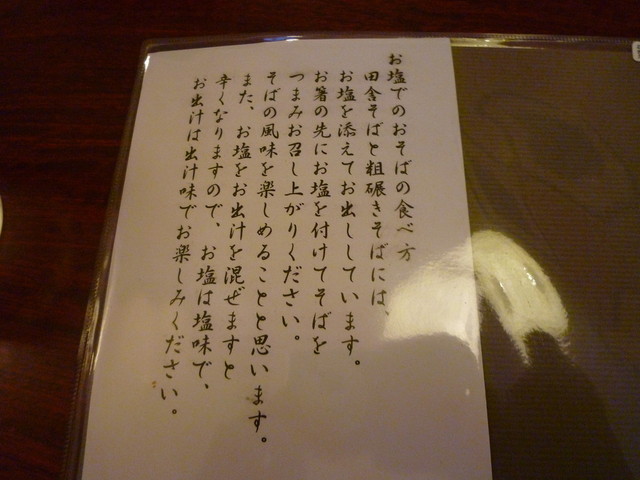 お塩でのおそばの食べ方
田舎そばと粗碾きそばには、
お塩を添えてお出ししています。
お箸の先にお塩を付けてそばを
つまみお召し上がりください。
そばの風味を楽しめることと思います。
また、お塩をお出汁を混ぜますと
辛くなりますので、お塩は塩味で、
お出汁は出汁味でお楽しみください。